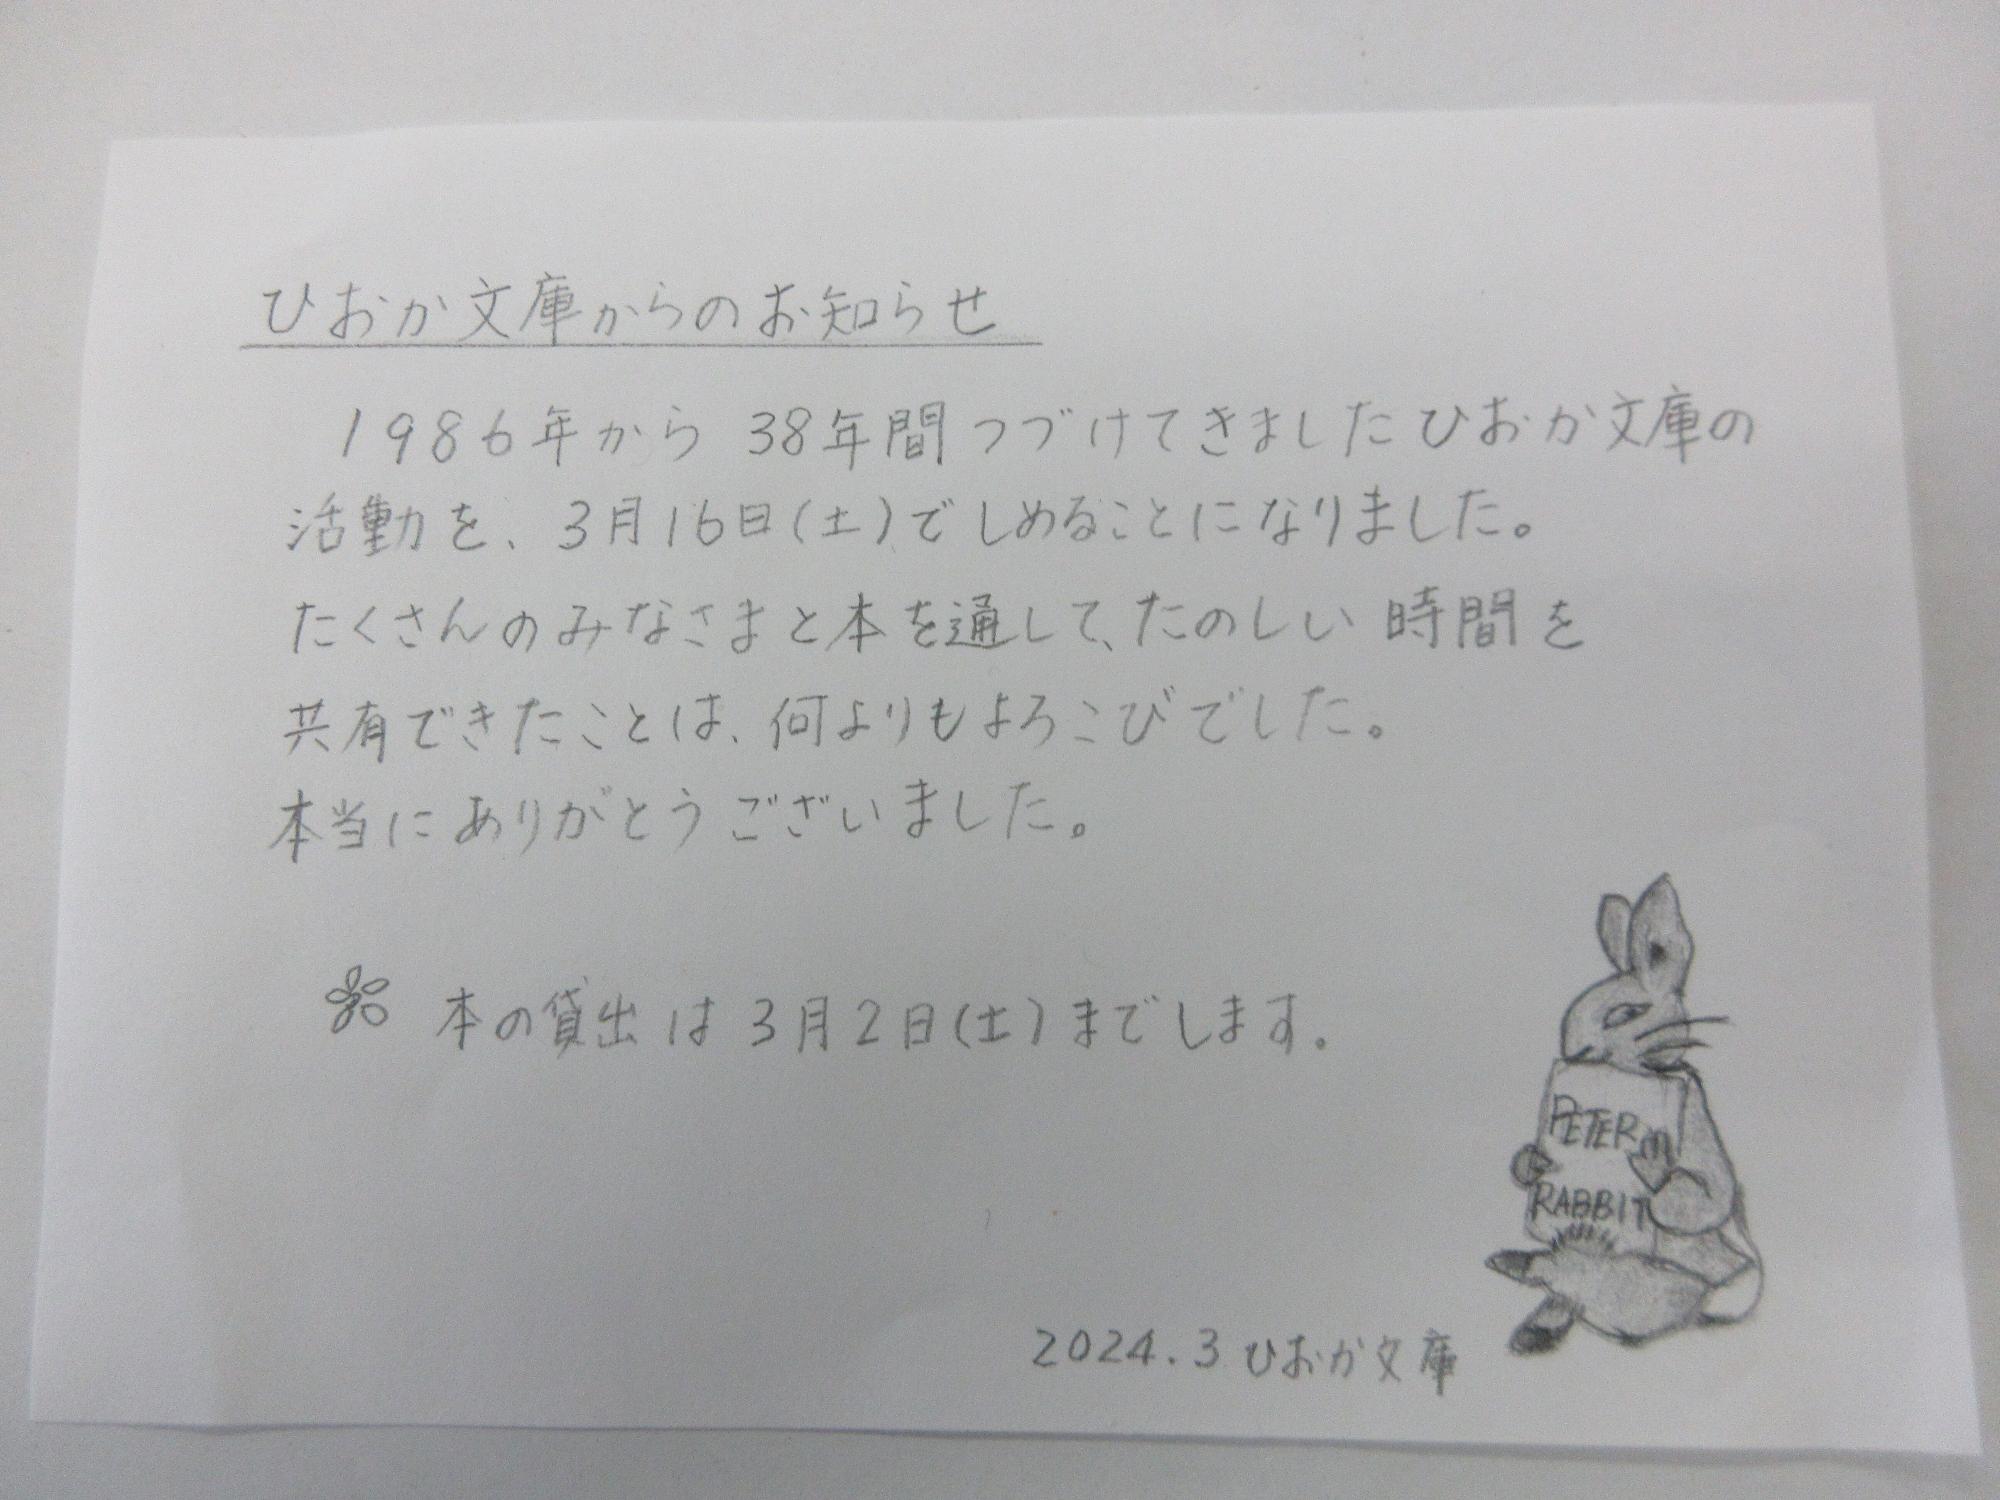 ひおか文庫からのお知らせ
1986年から 38年間つづけてきましたひおか文庫の
活動を、3月16日(土)でしめることになりました。
たくさんのみなさまと本を通して、たのしい時間を
共有できたことは、何よりもよろこびでした。
本当にありがとうございました。
本の貸出は3月2日(土)までします。
PETER
RABBIT
2024.3 ひおか文庫